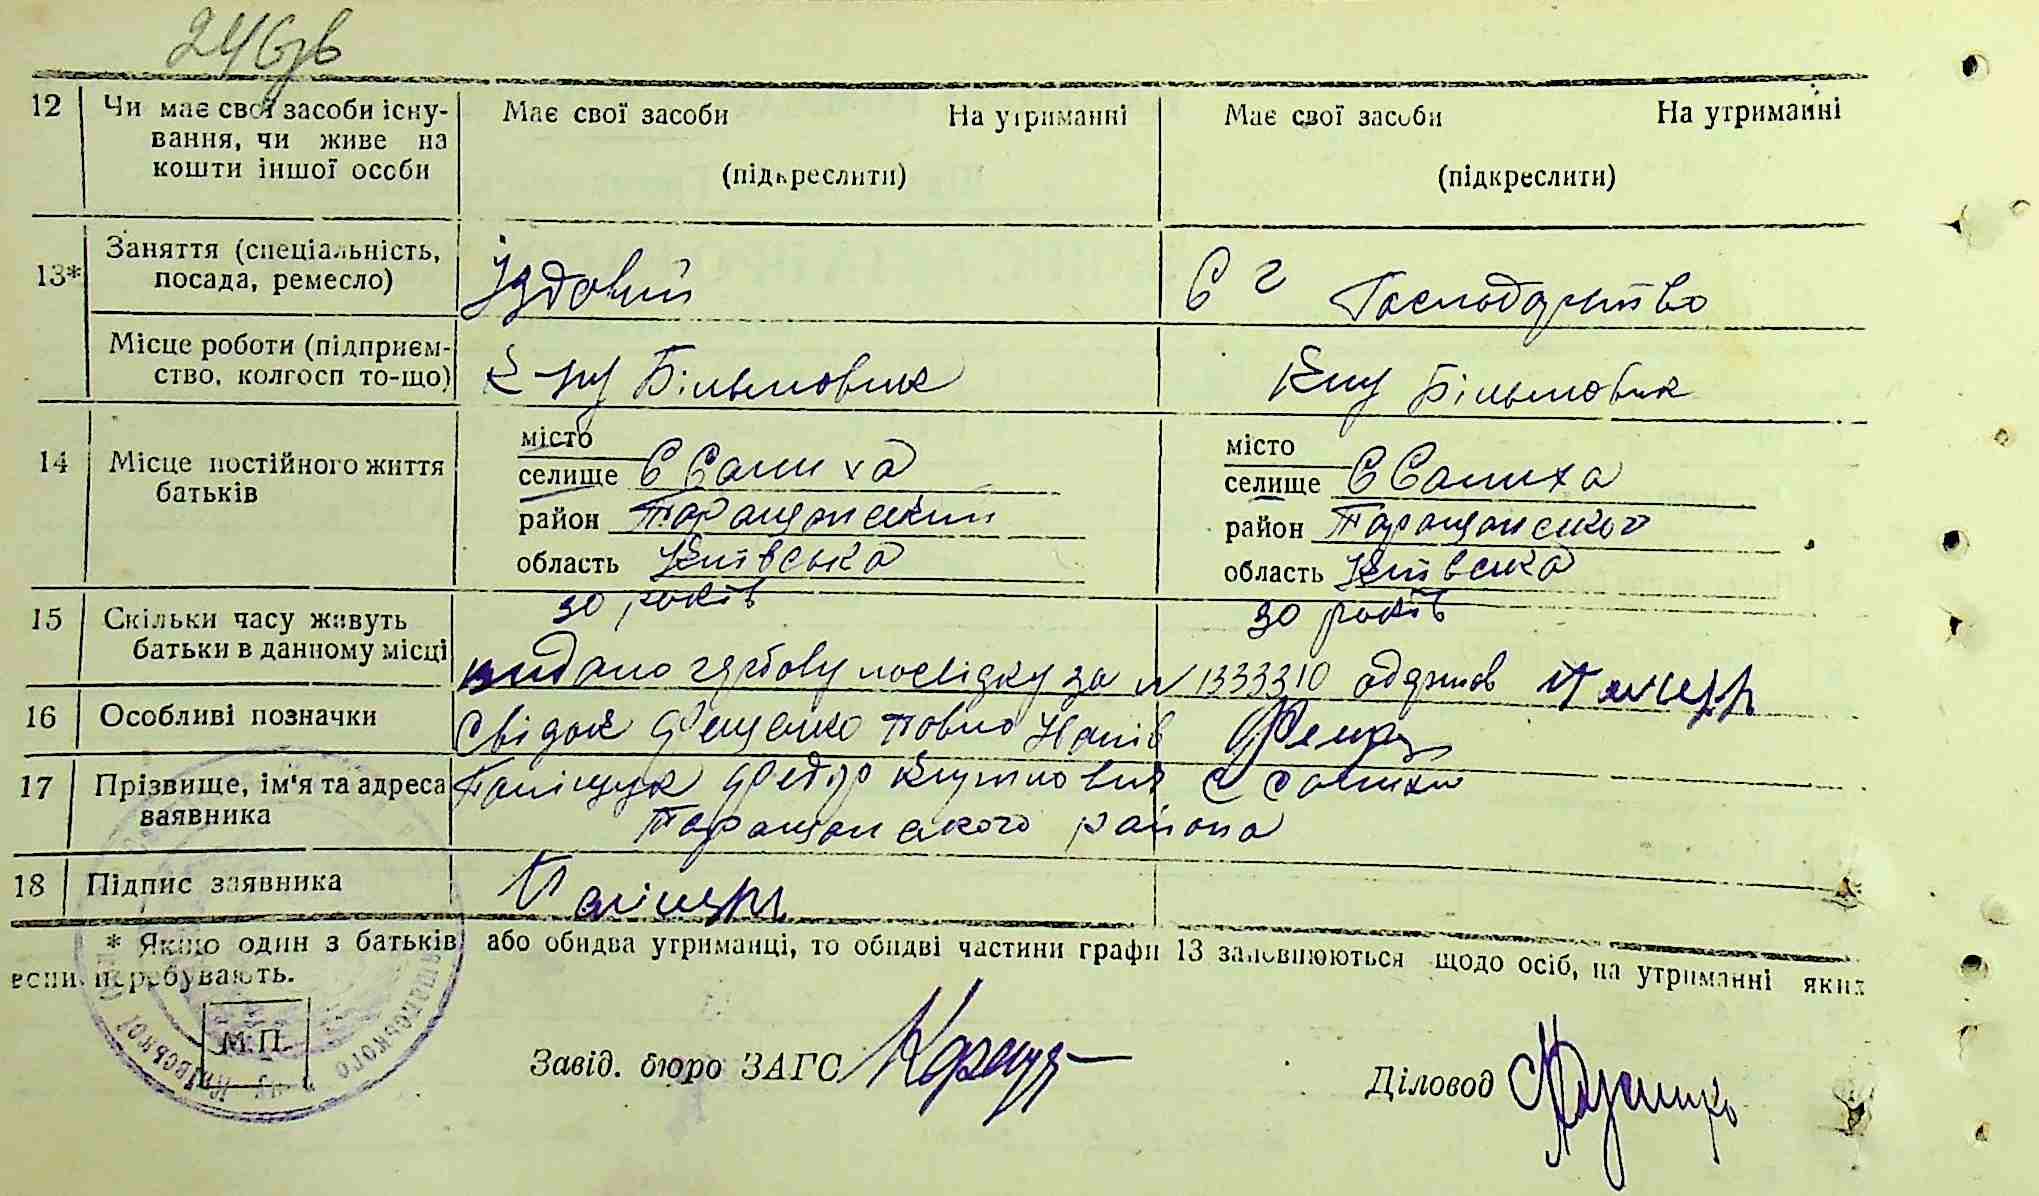 246зв
12 Чи має свої засоби існу- Має свої засоби На утриманні Має свої засоби На утриманні
вання, чи живе на
кошти іншої особи (підкреслити) (підкреслити)
13* Заняття (спеціальність, Їздовий С г Господарство
посада, ремесло)
Місце роботи (підприєм- Більшовик Більшовик
ство, колгосп то-що)
місто місто
14 Місце постійного життя селище С Салиха селище С Салиха
батьків район Таращанский район Таращанского
область Київська область Київска
30 років 30 років
15 Скільки часу живуть
батьки в данному місці видано гербову посвідку за N 1333310 одержов
16 Особливі позначки Свідок Фещенко Павло
17 Прізвище, ім'я та адреса Поліщук Федор С Салихи
заявника Таращанского района
18 Підпис заявника
* Якщо один з батьків або обидва утриманці, то обидві частини графи 13 заповнюються щодо осіб, на утриманні яких
вони перебувають.
М.П.
Завід. бюро ЗАГС Діловод